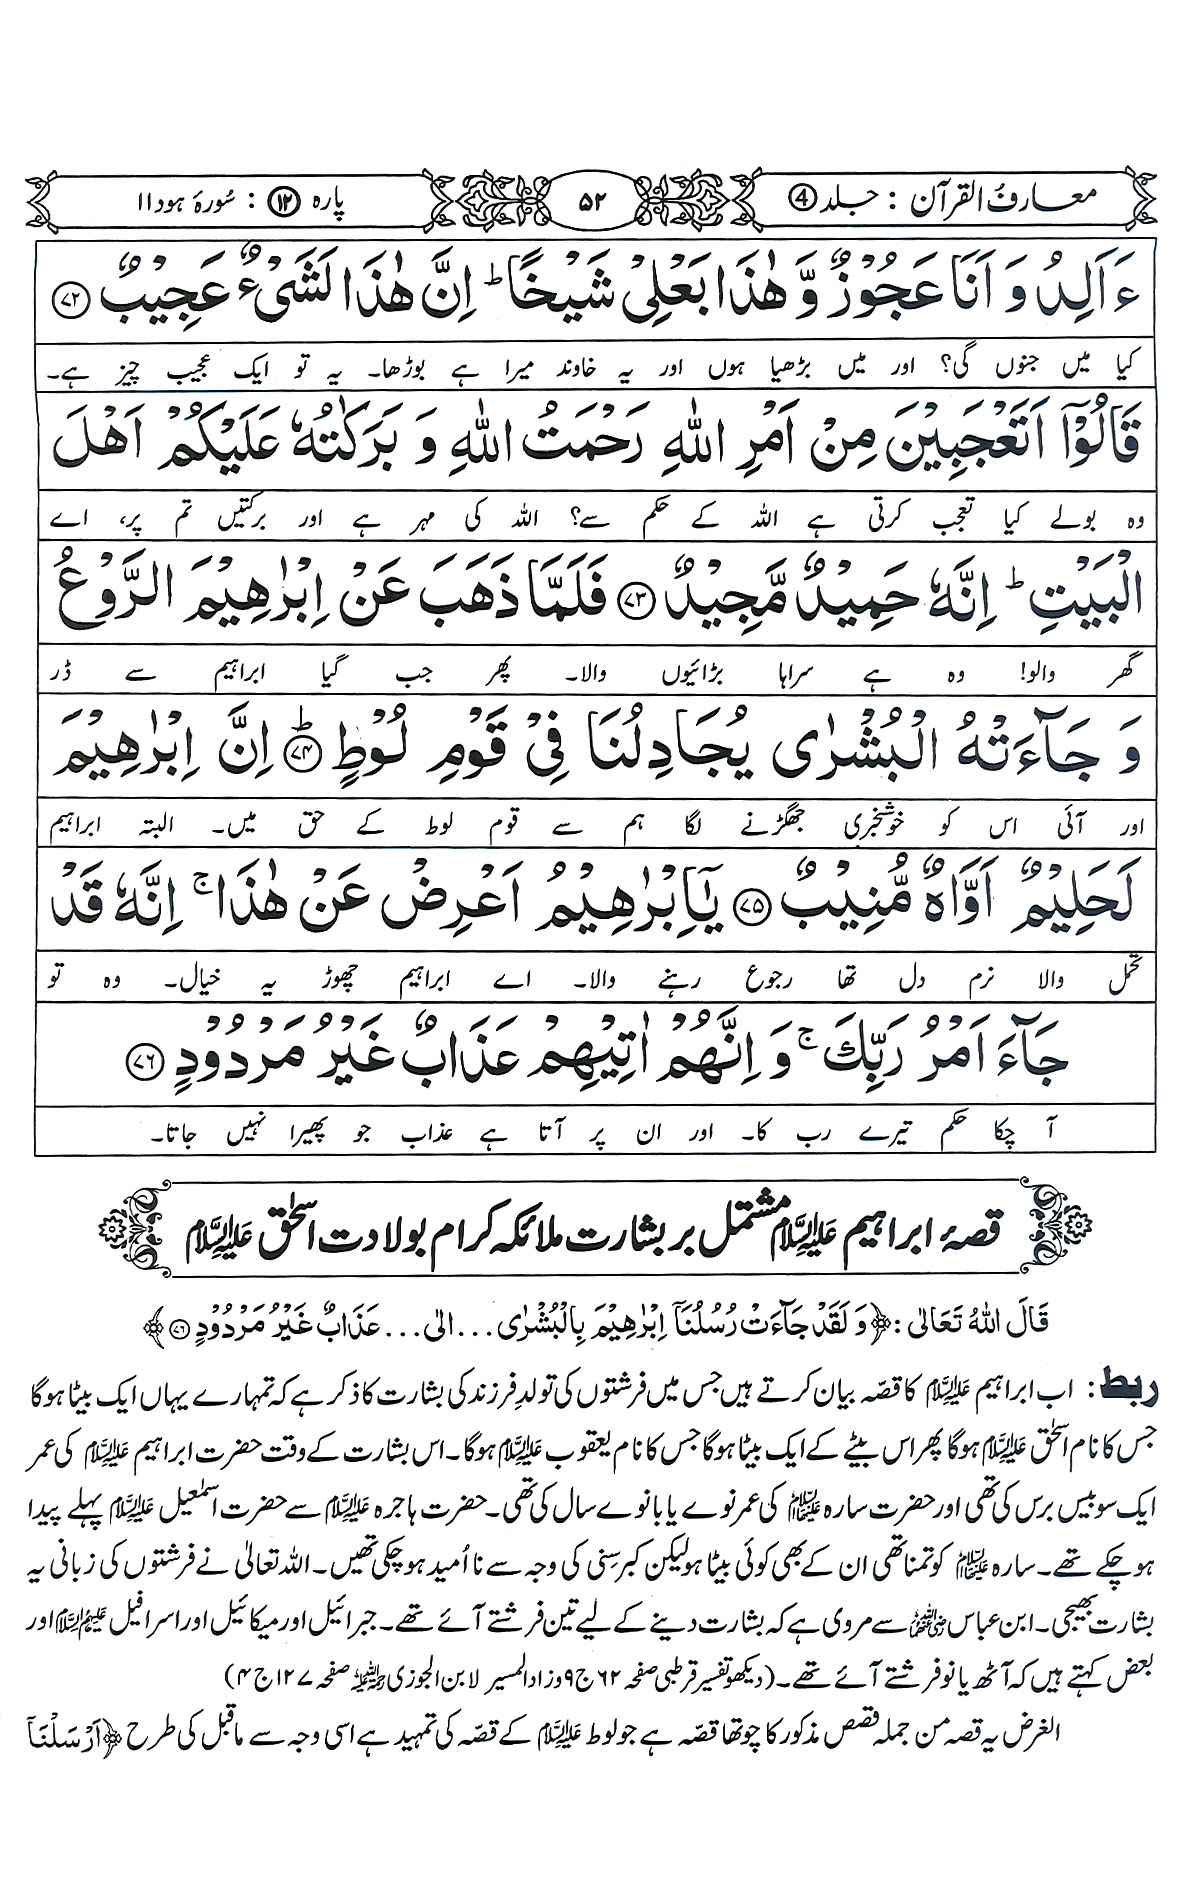 معارف القرآن : جلد ④
۵۲
پارہ ⑫ : سُورہَ ہود ۱۱
ءَاَلِدُ وَ اَنَا عَجُوْزٌ وَّ هٰذَا بَعْلِیْ شَیْخًا ؕ اِنَّ هٰذَا لَشَیْءٌ عَجِیْبٌ ﴿۷۲﴾
کیا میں جنوں گی؟ اور میں بڑھیا ہوں اور یہ خاوند میرا ہے بوڑھا۔ یہ تو ایک عجیب چیز ہے۔
قَالُوْۤا اَتَعْجَبِیْنَ مِنْ اَمْرِ اللّٰهِ رَحْمَتُ اللّٰهِ وَ بَرَكٰتُهٗ عَلَیْكُمْ اَهْلَ
وہ بولے کیا تعجب کرتی ہے اللہ کے حکم سے؟ اللہ کی مہر ہے اور برکتیں تم پر، اے
الْبَیْتِ ؕ اِنَّهٗ حَمِیْدٌ مَّجِیْدٌ ﴿۷۳﴾ فَلَمَّا ذَهَبَ عَنْ اِبْرٰهِیْمَ الرَّوْعُ
گھر والو! وہ ہے سراہا بڑائیوں والا۔ پھر جب گیا ابراہیم سے ڈر
وَ جَآءَتْهُ الْبُشْرٰی یُجَادِلُنَا فِیْ قَوْمِ لُوْطٍ ﴿۷۴﴾ؕ اِنَّ اِبْرٰهِیْمَ
اور آئی اس کو خوشخبری جھگڑنے لگا ہم سے قوم لوط کے حق میں۔ البتہ ابراہیم
لَحَلِیْمٌ اَوَّاهٌ مُّنِیْبٌ ﴿۷۵﴾ یٰۤاِبْرٰهِیْمُ اَعْرِضْ عَنْ هٰذَا ۚ اِنَّهٗ قَدْ
تحمل والا نرم دل تھا رجوع رہنے والا۔ اے ابراہیم چھوڑ یہ خیال۔ وہ تو
جَآءَ اَمْرُ رَبِّكَ ۚ وَ اِنَّهُمْ اٰتِیْهِمْ عَذَابٌ غَیْرُ مَرْدُوْدٍ ﴿۷۶﴾
آ چکا حکم تیرے رب کا۔ اور ان پر آتا ہے عذاب جو پھیرا نہیں جاتا۔
قصۂ ابراہیم علیہ السلام مشتمل بر بشارت ملائکہ کرام بولادت اسحٰق علیہ السلام
قَالَ اللّٰهُ تَعَالٰی : ﴿وَ لَقَدْ جَآءَتْ رُسُلُنَاۤ اِبْرٰهِیْمَ بِالْبُشْرٰی... الٰی... عَذَابٌ غَیْرُ مَرْدُوْدٍ۷۶﴾
ربط: اب ابراہیم علیہ السلام کا قصّہ بیان کرتے ہیں جس میں فرشتوں کی تولد فرزند کی بشارت کا ذکر ہے کہ تمہارے یہاں ایک بیٹا ہوگا
جس کا نام اسحٰق علیہ السلام ہوگا پھر اس بیٹے کے ایک بیٹا ہوگا جس کا نام یعقوب علیہ السلام ہوگا۔ اس بشارت کے وقت حضرت ابراہیم علیہ السلام کی عمر
ایک سو بیس برس کی تھی اور حضرت سارہ علیہا السلام کی عمر نوے یا بانوے سال کی تھی۔ حضرت ہاجرہ علیہا السلام سے حضرت اسمٰعیل علیہ السلام پہلے پیدا
ہو چکے تھے۔ سارہ علیہا السلام کو تمنا تھی ان کے بھی کوئی بیٹا ہو لیکن کبر سنی کی وجہ سے نا اُمید ہو چکی تھیں۔ اللہ تعالیٰ نے فرشتوں کی زبانی یہ
بشارت بھیجی۔ ابن عباس رضی اللہ عنہما سے مروی ہے کہ بشارت دینے کے لیے تین فرشتے آئے تھے۔ جبرائیل اور میکائیل اور اسرافیل علیہم السلام اور
بعض کہتے ہیں کہ آٹھ یا نو فرشتے آئے تھے۔ (دیکھو تفسیر قرطبی صفحہ ۶۲ ج ۹ وزاد المسیر لابن الجوزی رحمہ اللہ صفحہ ۱۲۷ ج ۴)
الغرض یہ قصہ من جملہ قصص مذکور کا چوتھا قصّہ ہے جو لوط علیہ السلام کے قصّہ کی تمہید ہے اسی وجہ سے ماقبل کی طرح ﴿اَرْسَلْنَاۤ